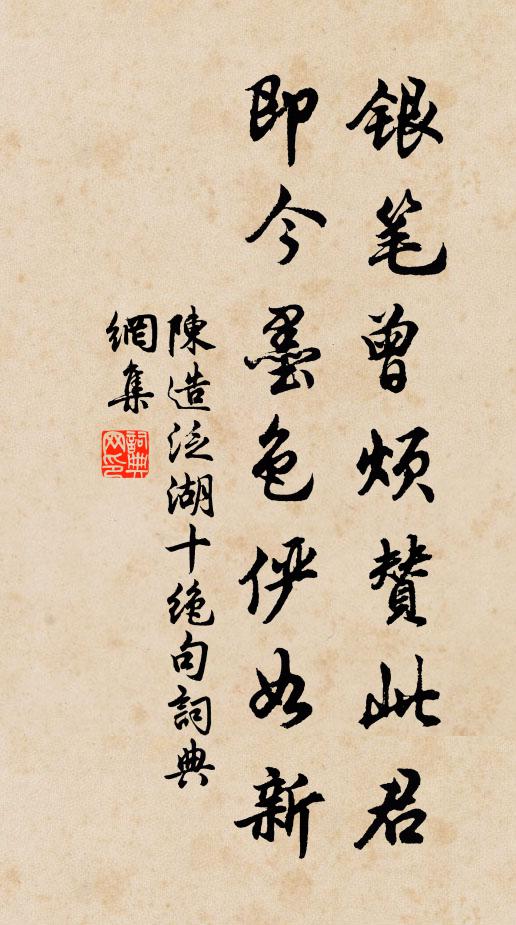 銀笔曾煩贊此君
即今墨色俨如新
陳造泛湖十绝句詞典
網集
詞典
网印